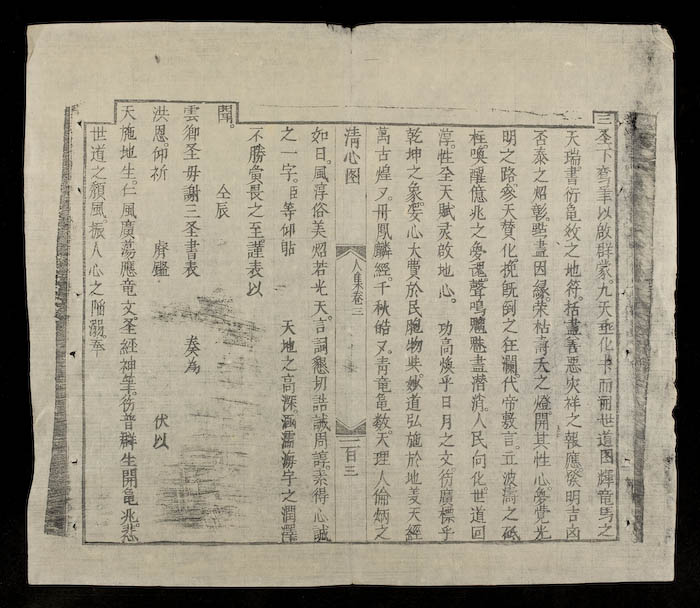 三圣下奎筆以啟群蒙。九天垂化卡而耐世道图輝竜馬之
天瑞書衍龟效之地符。括盡善惡灾祥之報應發明吉凶
否泰之炤彰。些盡因縁。荣枯壽夭之燈。開其性心。夢覺光
明之路。参天賛化。挽既倒之狂瀾。代帝敷言。立波濤之砥
柱。喚醒億兆之夢魂。聲鳴魑魅盡潜消。人民向化世道回
淳。性全天賦灵啟地心。 功高煥乎日月之文仿廣標乎
乾坤之象。安心大費於民胞物與。妙道弘施於地羑天經
萬古煌〻。丹鳳麟經千秋皓〻。青竜龟教。天理人倫炳之
清心图
人集卷三
二百三
如日。風淳俗美炤若光天。言詞懇切誥誡周諄。素得心誠
之一字。臣等仰貼 天地之高深。涵濡海宇之潤澤
不勝寅畏之至謹表以
聞。
仝辰
雲郷圣毋謝三圣書表
洪恩。仰祈 府鑑 奏为 伏以
天施地生。仁風廣荡應竜文圣經神筆。仿普群生開龟兆悲
世道之頹風。振人心之陷溺。奉